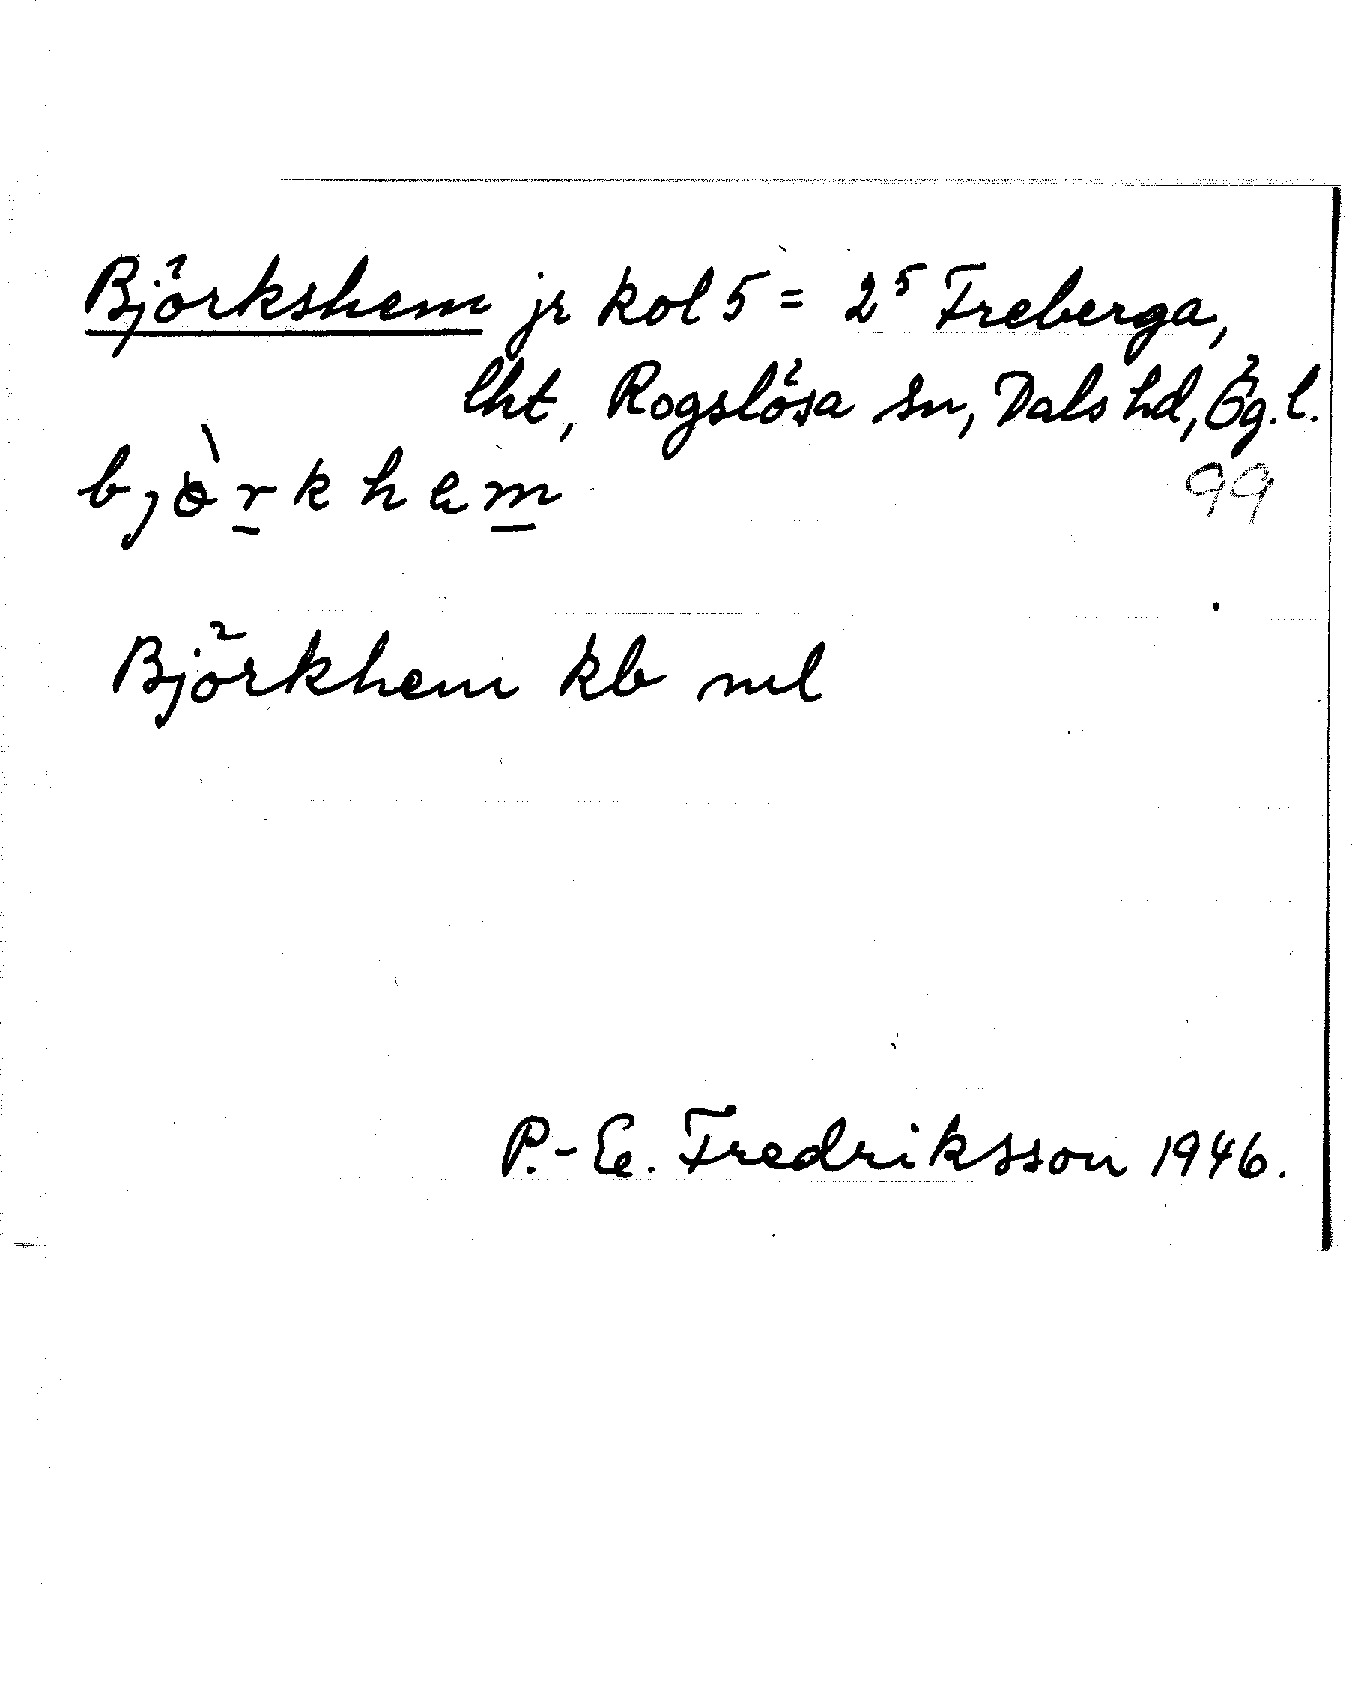 Björkshem jr kol 5 = 2⁵ Freberga,
lht, Rogslösa sn, Dals hd, Ög. l.
bjòrkhem 99
Björkhem kb ml
P.-E. Fredriksson 1946.